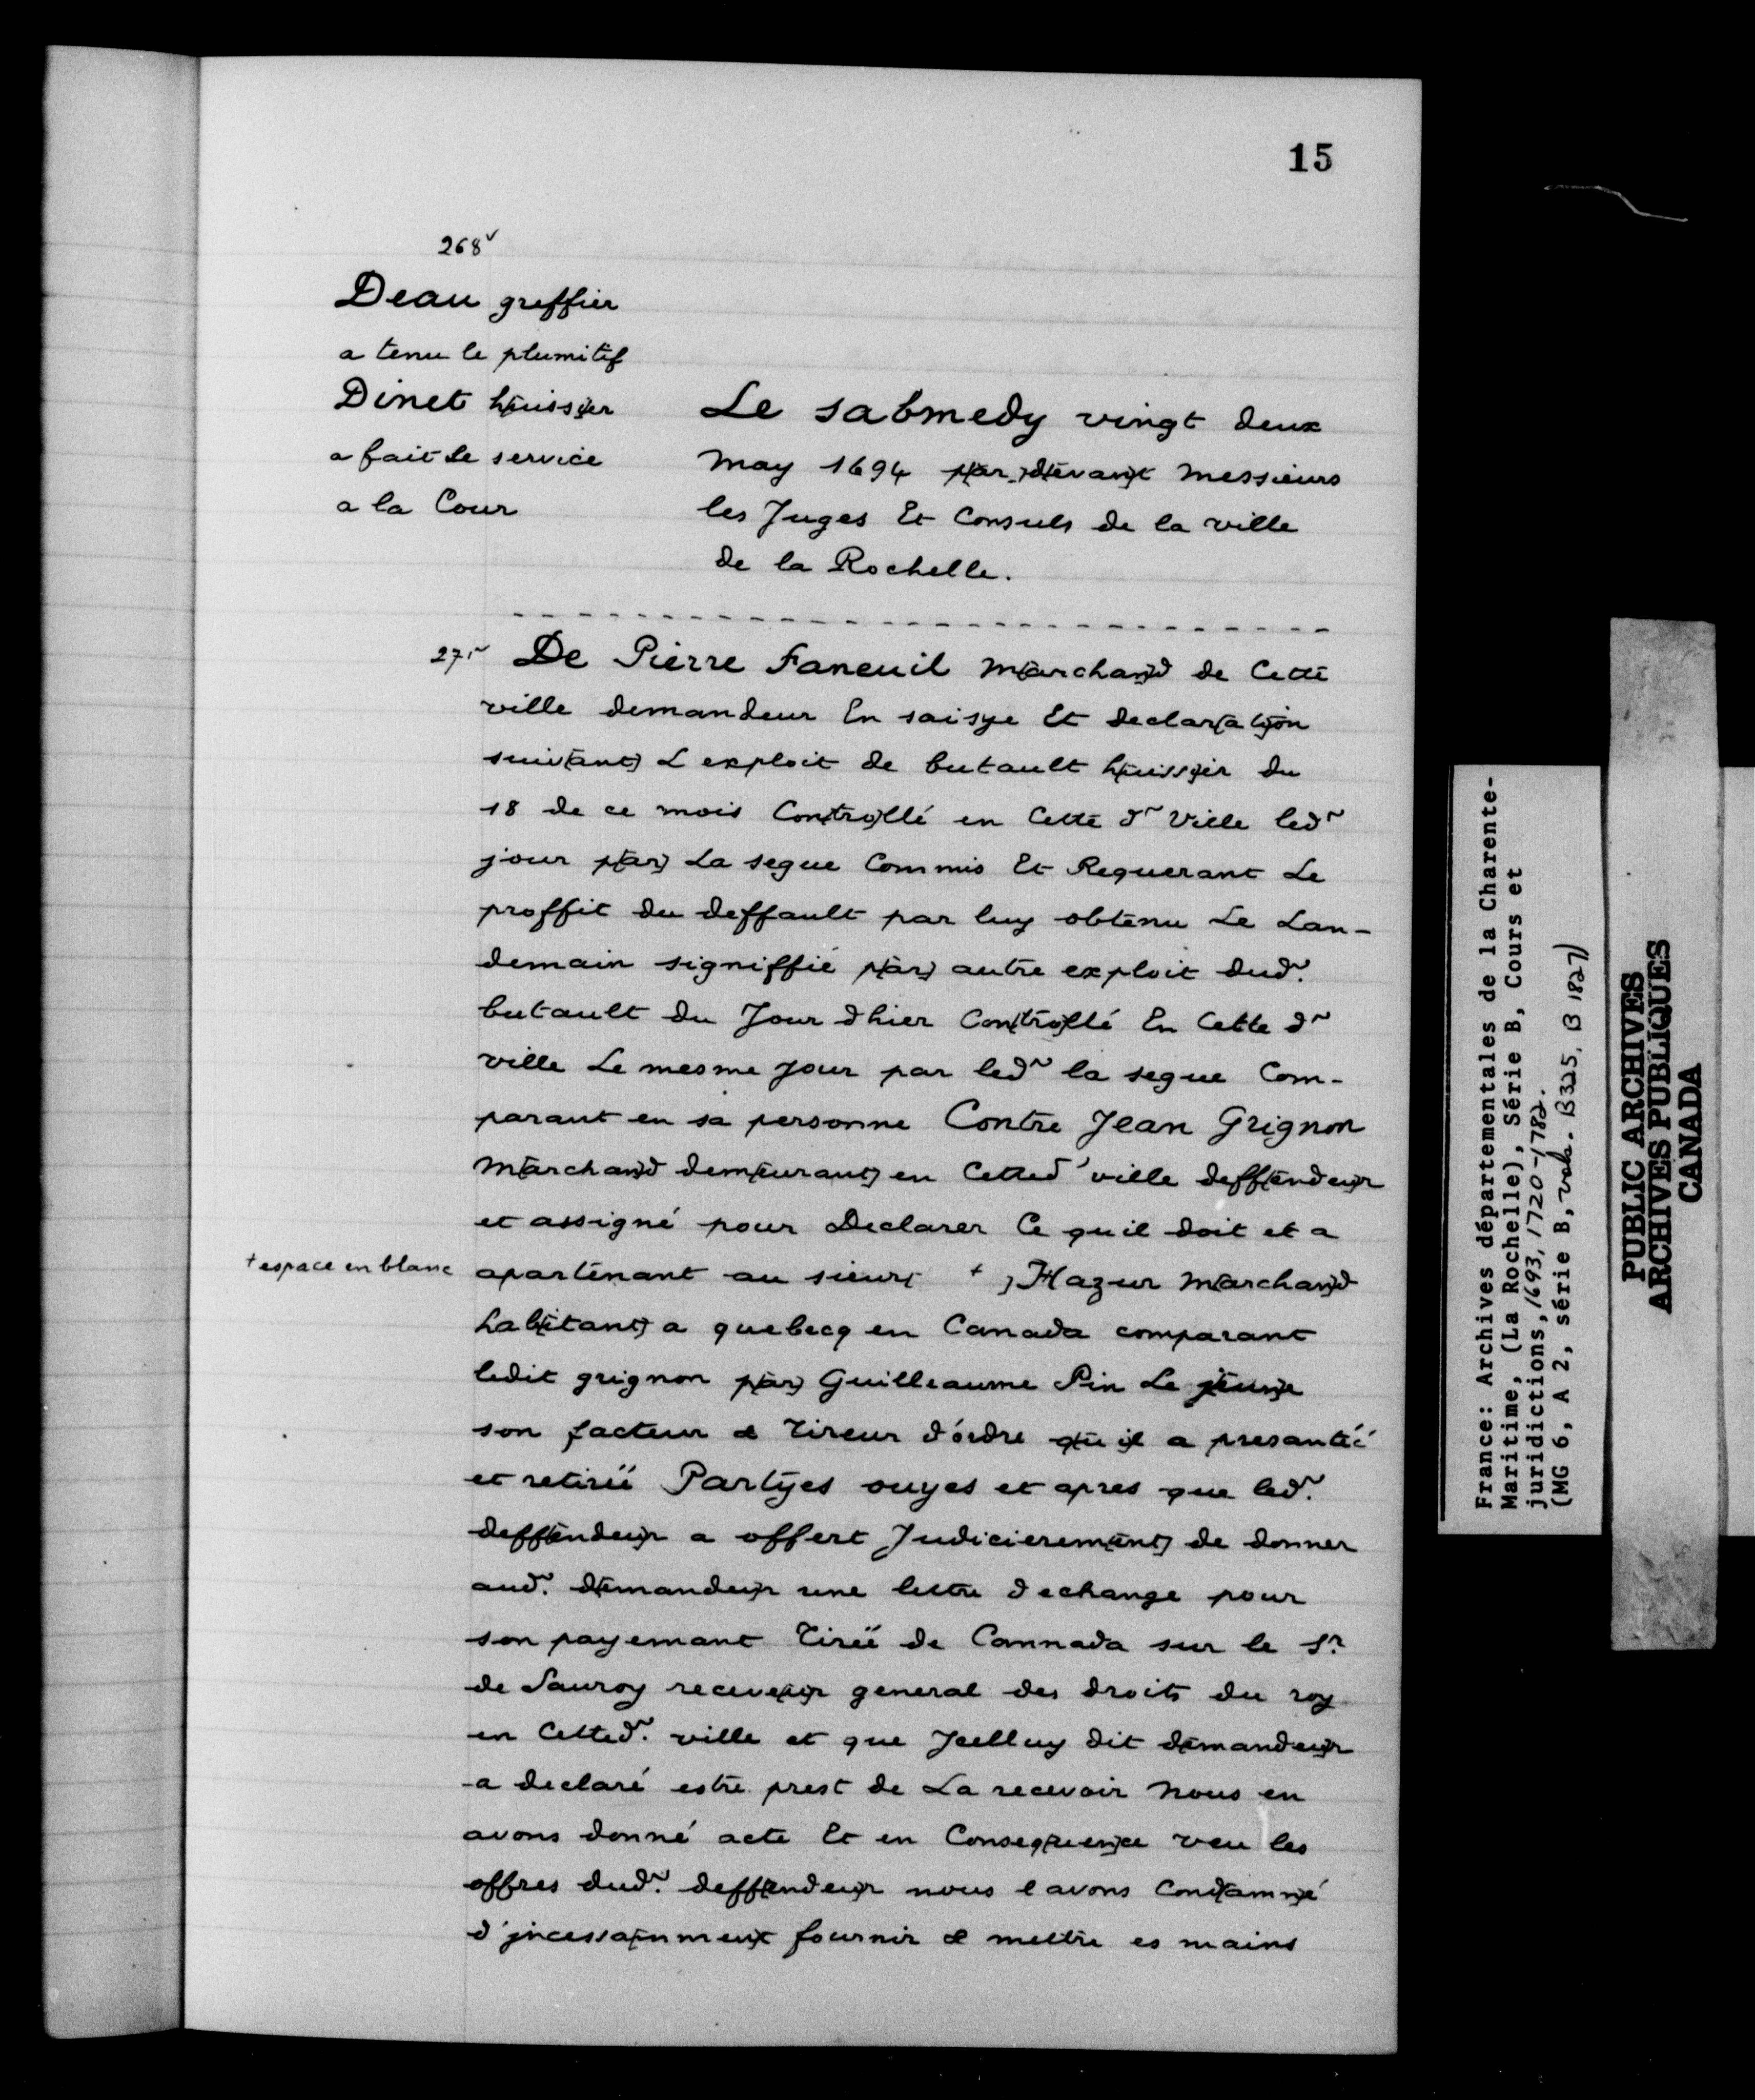 15
268v
Deau greffier
a tenu le plumitif
Dinet h(uiss)ier
a fait le service
a la Cour
Le sabmedy vingt deux
may 1694 p(ar) d(evan)t messieurs
les Juges Et Consuls de la ville
de la Rochelle.
27r De Pierre Faneuil M(archan)d de Cette
ville demandeur En saisye Et declar(at)ion
suiv(ant) L exploit de butault h(uiss)ier du
18 de ce mois Con(tro)llé en Cette d~ Ville led~
jour p(ar) La segue Commis Et Requerant Le
proffit du deffault par luy obtenu Le Lan-
demain signiffié p(ar) autre exploit dud~.
butault du Jour dhier Con(tro)llé En Cette d~
ville Le mesme Jour par led~ la segue Com-
parant en sa personne Contre Jean Grignon
M(archan)d dem(eurant) en Cetted~ ville deff(endeu)r
et assigné pour Declarer Ce quil doit et a
+ espace en blanc
apartenant au sieur( + ) Hazur M(archan)d
hab(itant) a quebecq en Canada comparant
ledit grignon p(ar) Guilleaume Pin Le j(eun)e
son facteur & tireur d'ordre qu il a presantéé
et retiréé Partÿes ouyes et apres que led~.
deff(endeu)r a offert Judicierem(ent) de donner
aud~. d(emandeu)r une lettre dechange pour
son payemant tiréé de Cannada sur le Sr.
de Sauroy recev(eu)r general des droits du roy
en Cetted~. ville et que Jcelluy dit d(emandeu)r
a declaré estre prest de La recevoir Nous en
avons donné acte Et en Conseq(uen)ce veu les
offres dud~. deff(endeu)r nous l avons Cond(amn)é
d'jncessa(mmen)t fournir & mettre es mains
France: Archives départementales de la Charente-
Maritime, (La Rochelle), Série B, Cours et
juridictions, 1693, 1720-1782.
(MG 6, A 2, série B, vols. B 325, B 1827)
PUBLIC ARCHIVES
ARCHIVES PUBLIQUES
CANADA